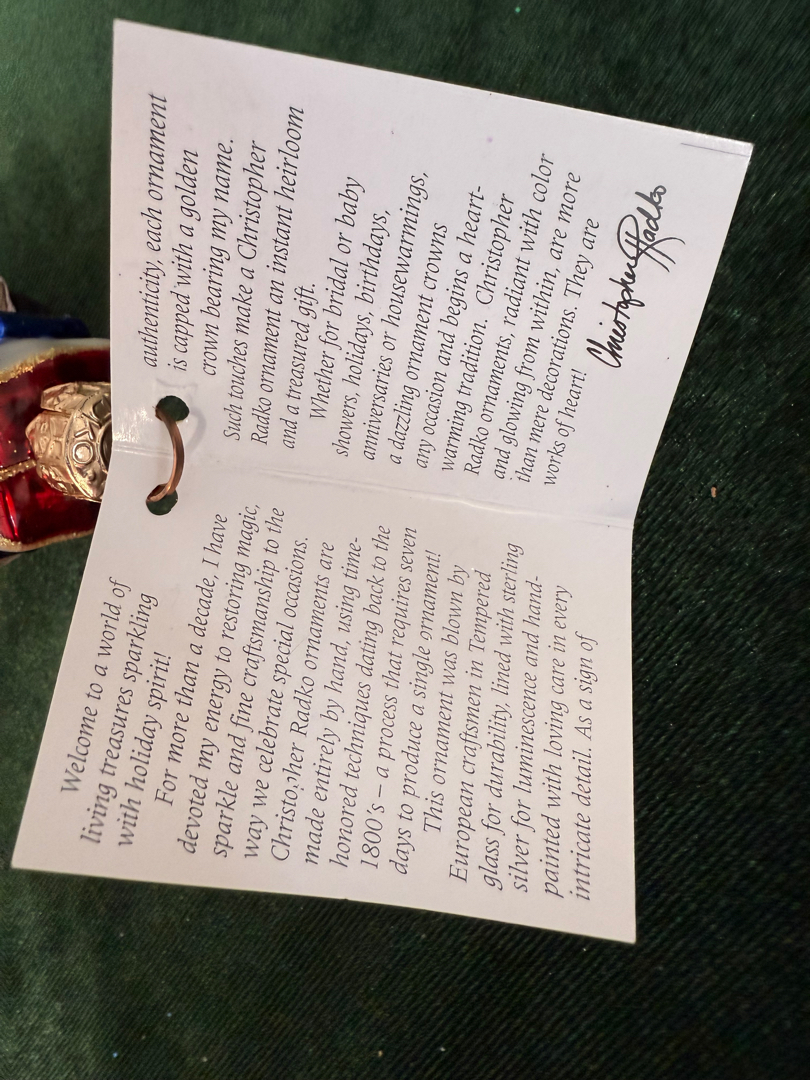 Welcome to a world of
living treasures sparkling
with holiday spirit!
For more than a decade, I have
devoted my energy to restoring magic,
sparkle and fine craftsmanship to the
way we celebrate special occasions.
Christopher Radko ornaments are
made entirely by hand, using time-
honored techniques dating back to the
1800's – a process that requires seven
days to produce a single ornament!
This ornament was blown by
European craftsmen in Tempered
glass for durability, lined with sterling
silver for luminescence and hand-
painted with loving care in every
intricate detail. As a sign of
authenticity, each ornament
is capped with a golden
crown bearing my name.
Such touches make a Christopher
Radko ornament an instant heirloom
and a treasured gift.
Whether for bridal or baby
showers, holidays, birthdays,
anniversaries or housewarmings,
a dazzling ornament crowns
any occasion and begins a heart-
warming tradition. Christopher
Radko ornaments, radiant with color
and glowing from within, are more
than mere decorations. They are
works of heart!
Christopher Radko